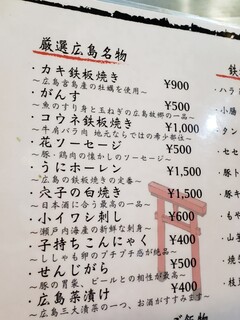 厳選広島名物
・カキ鉄板焼き ¥900
～広島宮島産の牡蠣を使用～
・がんす ¥500
～魚のすり身と玉ねぎの広島故郷の一品～
・コウネ鉄板焼き ¥1,000
～牛肩バラ肉 地元ならではの希少部位～
・花ソーセージ ¥500
～豚・鶏肉の懐かしのソーセージ～
・うにホーレン ¥1,500
～広島の鉄板焼きの定番～
・穴子の白焼き ¥1,500
～日本酒に合う最高の一品～
・小イワシ刺し ¥600
～瀬戸内海産の新鮮な刺身～
・子持ちこんにゃく ¥400
～ししゃも卵のプチプチ感が絶品～
・せんじがら ¥500
～豚の胃袋、ビールとの相性が最高～
・広島菜漬け ¥400
～広島三大漬菜の一つ、お酒がすすみます～
鉄
ハラ
・小腸
・タン
・セ
・豚
・豚ト
・
・エ
・枝豆
ご飯物